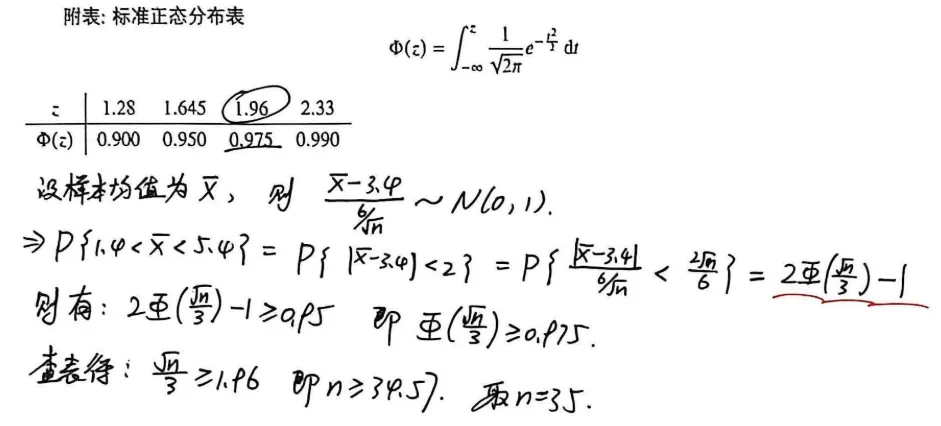 附表: 标准正态分布表
Φ(z) = ∫_{-∞}^{z} \frac{1}{\sqrt{2π}} e^{-\frac{t^2}{2}} dt
z 1.28 1.645 1.96 2.33
Φ(z) 0.900 0.950 0.975 0.990
设样本均值为 X̄, 则 \frac{X̄-3.4}{6/\sqrt{n}} ~ N(0,1).
⇒ P{1.4 < X̄ < 5.4} = P{|X̄-3.4| < 2} = P{\frac{|X̄-3.4|}{6/\sqrt{n}} < \frac{2\sqrt{n}}{6}} = 2Φ(\frac{\sqrt{n}}{3})-1
则有: 2Φ(\frac{\sqrt{n}}{3})-1 ≥ 0.95 即 Φ(\frac{\sqrt{n}}{3}) ≥ 0.975.
查表得: \frac{\sqrt{n}}{3} ≥ 1.96 即 n ≥ 34.57. 取 n=35.